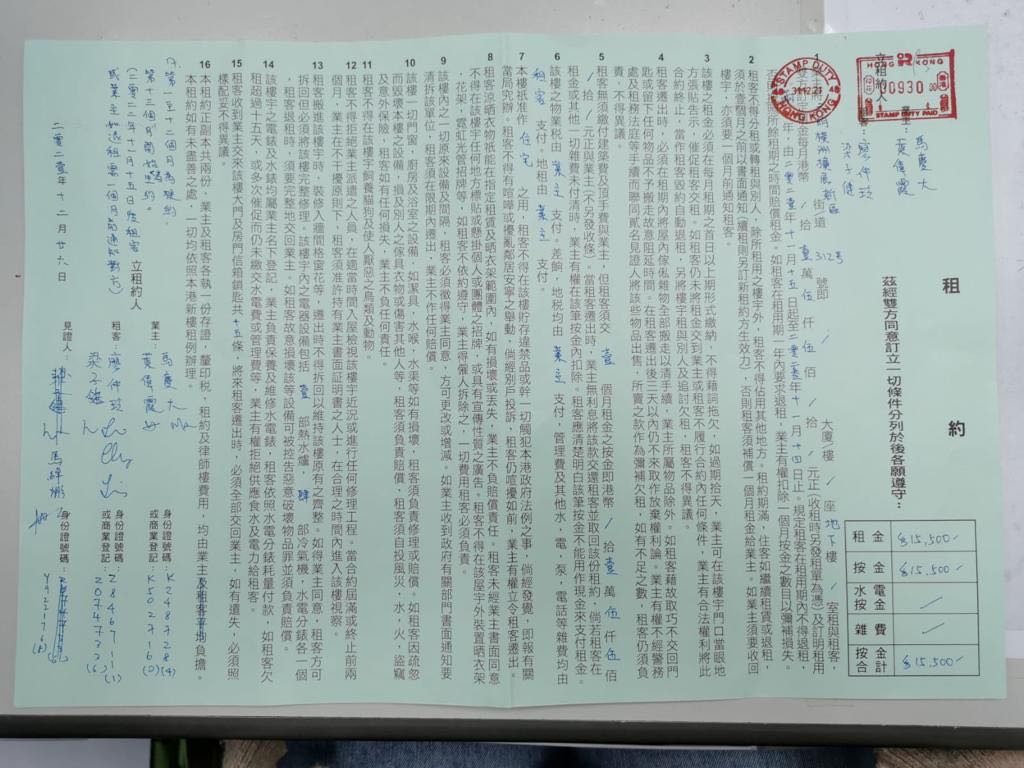 租　約
茲經雙方同意訂立一切條件分列於後各願遵守：
租金 $15,500/-
按金 $15,500/-
水電按金 /
雜費 /
按金合計 $15,500/-
立租約人
業主：馬慶大
黃偉霞
租客：廖仲玲
梁子健
HONG KONG
00930 00
STAMP DUTY PAID
STAMP DUTY
HONG KONG
2 租客不得將租約分租或轉租與別人，除所租用之樓宇外，租客不得佔用其他地方。租約期滿，住客如繼續租賃或退租，
須於壹個月之前以書面通知(續租則另訂新租約方生效力)，否則租客須補償一個月租金給業主。如業主須要收回
樓宇，亦須要一個月前通知租客。
3 該樓之租金必須在每月租期之首日以上期形式繳納，不得藉詞拖欠，如過期拾天，業主可在該樓宇門口當眼地
方張貼告示，催促租客交租。如租客仍未將租金交到業主或租客不履行合約內任何條件，業主有合法權利將此
合約終止，當作租客毀約自動退租，另將樓宇租與別人及追討欠租，租客不得異議。
4 租客遷出時，必須在租期內將屋內傢俬雜物全部搬走以清手續，業主所屬物品除外。如租客藉故取巧不交回門
匙或留下任何物品不予搬走故意阻延時間。在租客遷出後三天以內仍不來取作放棄權利論。業主有權不經警務
處及租務法庭等手續而聯同貳名見證人將該些物品出售，所賣之款作為彌補欠租，如有不足之數，租客仍須負
責，不得異議。
5 租客無須繳付建築費及鞋金手費與業主，但租客須交 壹 個月租金之按金即港幣 / 拾 壹 萬 伍 仟 伍 佰
/ 拾 / 元正與業主(不另發收條)。當租客遷出時，業主無利息將該款交還租客並取回該份租約，倘若租客在
租金或其他一切雜費未付清時，業主有權在該筆按金內扣除。租客應清楚明白該筆按金不能用作現金來支付租金。
6 該樓之物業稅由 業主 支付。差餉、地稅均由 業主 支付，管理費及其他水，電，泵，電話等雜費均由
租客 支付。地租由 業主 支付。
7 本樓祇准作 住宅 之用，租客不得在該樓貯存違禁品或幹一切觸犯本港政府法例之事，倘經發覺，即報有關
當局究辦。租客不得有喧嘩或擾亂鄰居安寧之舉動，倘經別戶投訴，租客仍喧擾如前，業主有權立令租客遷出。
8 租客涼晒衣物祇能在指定租賃及晒衣架範圍內，如有損壞或丟失，業主不負賠償責任。租客未經業主書面同意
不得在該樓宇任何地方標貼或懸掛個人或團體之招牌，或具有宣傳性質之廣告。租客不得在該屋宇外裝置晒衣架
，花架，霓虹光管招牌等，如租客不依約遵守，業主得僱人拆除之，一切費用租客必須負責。
9 該樓內之一切原來設備及間隔，租客必須徵得業主同意，方可更改或增減。如業主收到政府有關部門書面通知要
清拆該單位，租客須在限期內遷出，業主不作任何賠償。
10 該樓一切門窗，廚房及浴室之設備，如潔具，水喉，水渠等如有損壞，租客須負責修理或賠償。如租客因疏忽
而毀壞本樓之設備，損及別人之傢具衣物或傷害其他人等，租客須負責賠償，租客須自投風火，水，火，盜竊
及意外保險，租客如有損失，業主不負任何責任。
11 租客不得在該樓宇飼養貓狗及使人厭惡之鳥類及動物。
12 租客不得拒絕業主派遣之人員，在適當時間入屋檢視該樓宇近況或進行任何修理工程。當合約屆滿或終止前兩
個月，業主在不干擾原則下，租客須准許持有業主書面証明書之人士，在合理之時間內進入該樓視察。
13 租客搬進該樓宇時，裝修入牆間格窗花等，遷出時不得拆回以維持該樓原有之齊整。如得業主同意，租客方可
拆回但必須將該樓完整修好。該樓宇內之電器設備包括 壹 部熱水爐， 肆 部冷氣機，水電分錶各一個
，租客退租時，須要完整地交回業主。如租客故意損壞該等設備可被控告惡意破壞物品罪並須負責賠償。
14 該樓宇之電錶及水錶均屬業主名下登記，業主負責保養及維修水電錶，租客依照水電分錶耗量付款，如租客欠
租超過十五天，或多次催促而仍未繳交水電費或管理費等，業主有權拒絕供應食水及電力給租客。
15 租客收到業主交來該樓大門及房門信箱鎖匙共 十五 條，將來租客遷出時，必須全部交回業主，如有遺失，必須照
樣配妥不得異議。
16 本租約正副本共兩份，業主及租客各執一份存證，釐印稅，租約及律師樓費用，均由業主及租客平均負擔。
本租約如有未盡善之處，一切均依照本港新樓租例辦理。
17. 第一至十二個月為硬約
第十三個月開始為生約。
(二零二二年十一月十五日後租客
或業主如退租需一個月前通知對方)
二零二一年十二月廿九日
立租約人
業主：馬慶大
黃偉霞
租客：廖仲玲
梁子健
見證人：
身份證號碼
或商業登記：
身份證號碼
或商業登記：
身份證號碼：